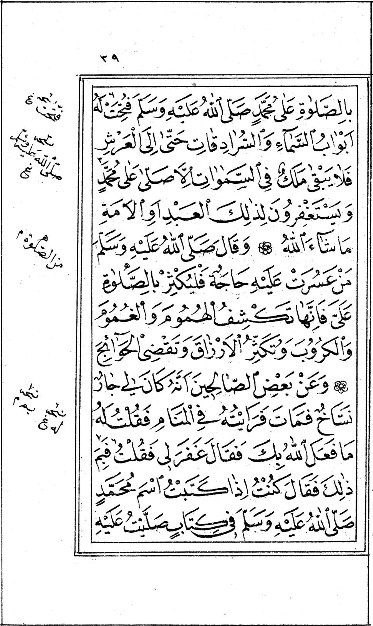 ٣٩
بِالصَّلٰوةِ عَلىٰ مُحَمَّدٍ صَلَّى اللهُ عَلَيْهِ وَسَلَّمَ فُتِحَتْ لَهُ
اَبْوَابُ السَّمَاءِ وَالسُّرَادِقَاتِ حَتّٰى اِلَى الْعَرْشِ
فَلَا يَبْقىٰ مَلَكٌ فِي السَّمٰوَاتِ اِلَّا صَلّىٰ عَلىٰ مُحَمَّدٍ
وَيَسْتَغْفِرُونَ لِذٰلِكَ الْعَبْدِ اَوِ الْاَمَةِ
مَا شَاءَ اللهُ ۞ وَقَالَ صَلَّى اللهُ عَلَيْهِ وَسَلَّمَ
مَنْ عَسُرَتْ عَلَيْهِ حَاجَةٌ فَلْيُكْثِرْ بِالصَّلٰوةِ
عَلَيَّ فَاِنَّهَا تَكْشِفُ الْهُمُومَ وَالْغُمُومَ
وَالْكُرُوبَ وَتُكَثِّرُ الْاَرْزَاقَ وَتَقْضِى الْحَوَائِجَ
۞ وَعَنْ بَعْضِ الصَّالِحِينَ اَنَّهُ كَانَ لِي جَارٌ
نَسَّاخٌ فَمَاتَ فَرَاَيْتُهُ فِي الْمَنَامِ فَقُلْتُ لَهُ
مَا فَعَلَ اللهُ بِكَ فَقَالَ غَفَرَ لِي فَقُلْتُ فَبِمَ
ذٰلِكَ فَقَالَ كُنْتُ اِذَا كَتَبْتُ اسْمَ مُحَمَّدٍ
صَلَّى اللهُ عَلَيْهِ وَسَلَّمَ فِي كِتَابٍ صَلَّيْتُ عَلَيْهِ
فتحت
صلى الله عليه وسلم
من الصلوة